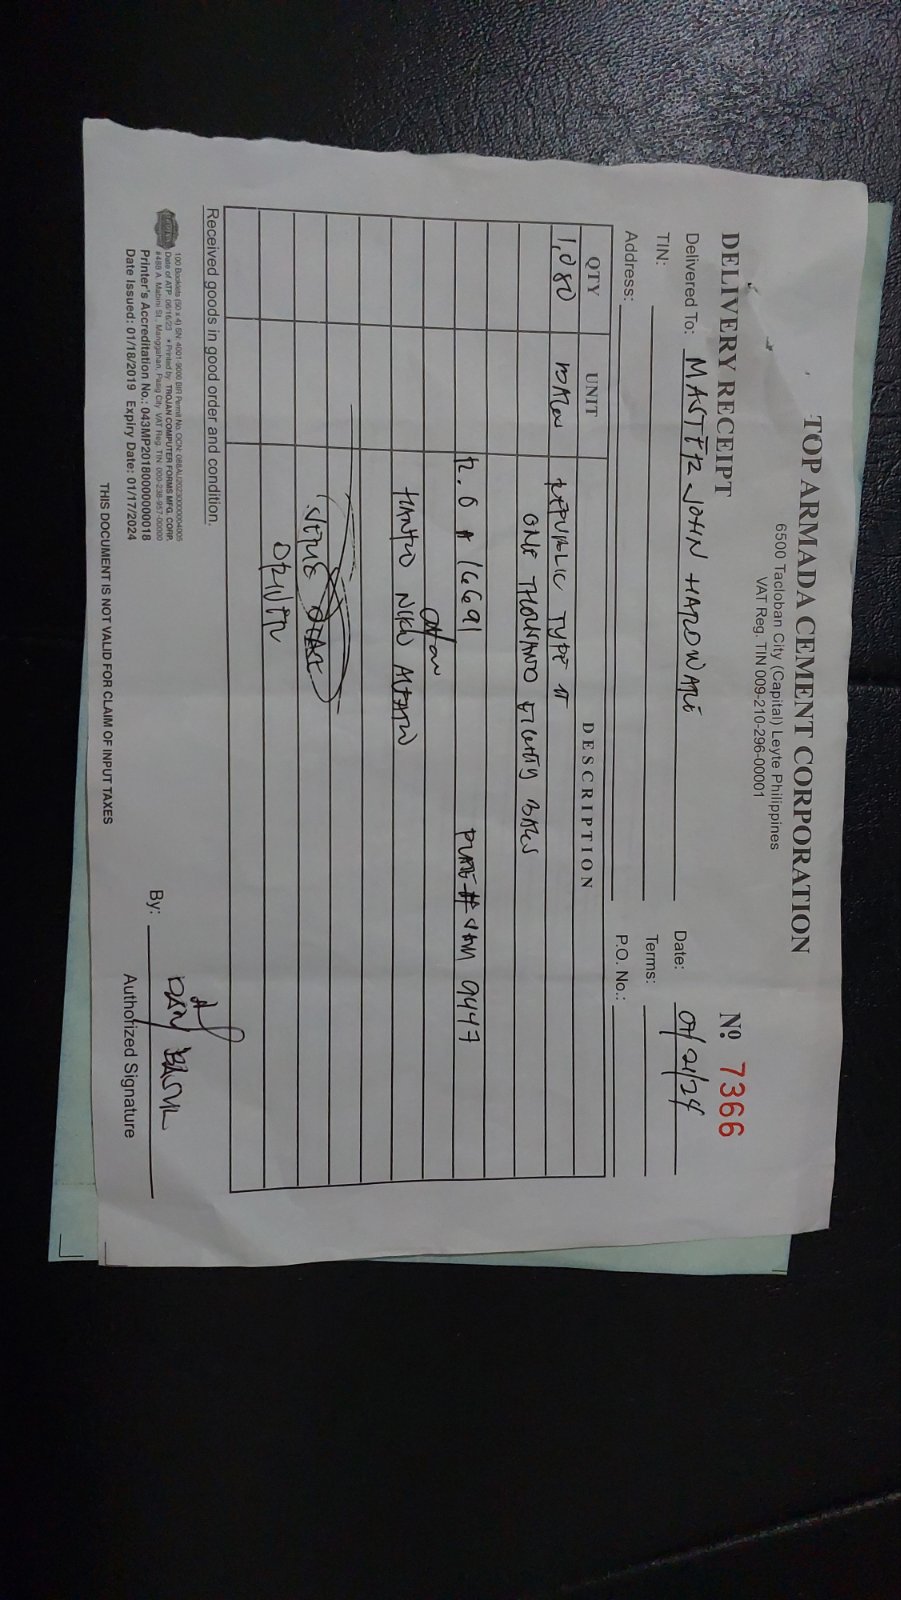 TOP ARMADA CEMENT CORPORATION
6500 Tacloban City (Capital) Leyte Philippines
VAT Reg. TIN 009-210-296-00001
DELIVERY RECEIPT
Nº 7366
Delivered To: MASTER JOHN HARDWARE
Date: 01/21/24
TIN:
Terms:
Address:
P.O. No.:
QTY UNIT DESCRIPTION
1,080 BAGS REPUBLIC TYPE II
ONE THOUSAND EIGHTY BAGS
R.O # 16691 PLATE # 9447
NIKO
DRIVER
Received goods in good order and condition.
100 Booklets (50 x 4) SN: 4001-9000 BIR Permit No. OCN:
Date of ATP: 06/16/23 • Printed by: TROJAN COMPUTER FORMS MFG. CORP.
#488 A. Mabini St., Manggahan, Pasig City VAT Reg. TIN: 000-238-957-00000
Printer's Accreditation No.: 043MP20180000000018
Date Issued: 01/18/2019 Expiry Date: 01/17/2024
By: DAN
Authorized Signature
THIS DOCUMENT IS NOT VALID FOR CLAIM OF INPUT TAXES